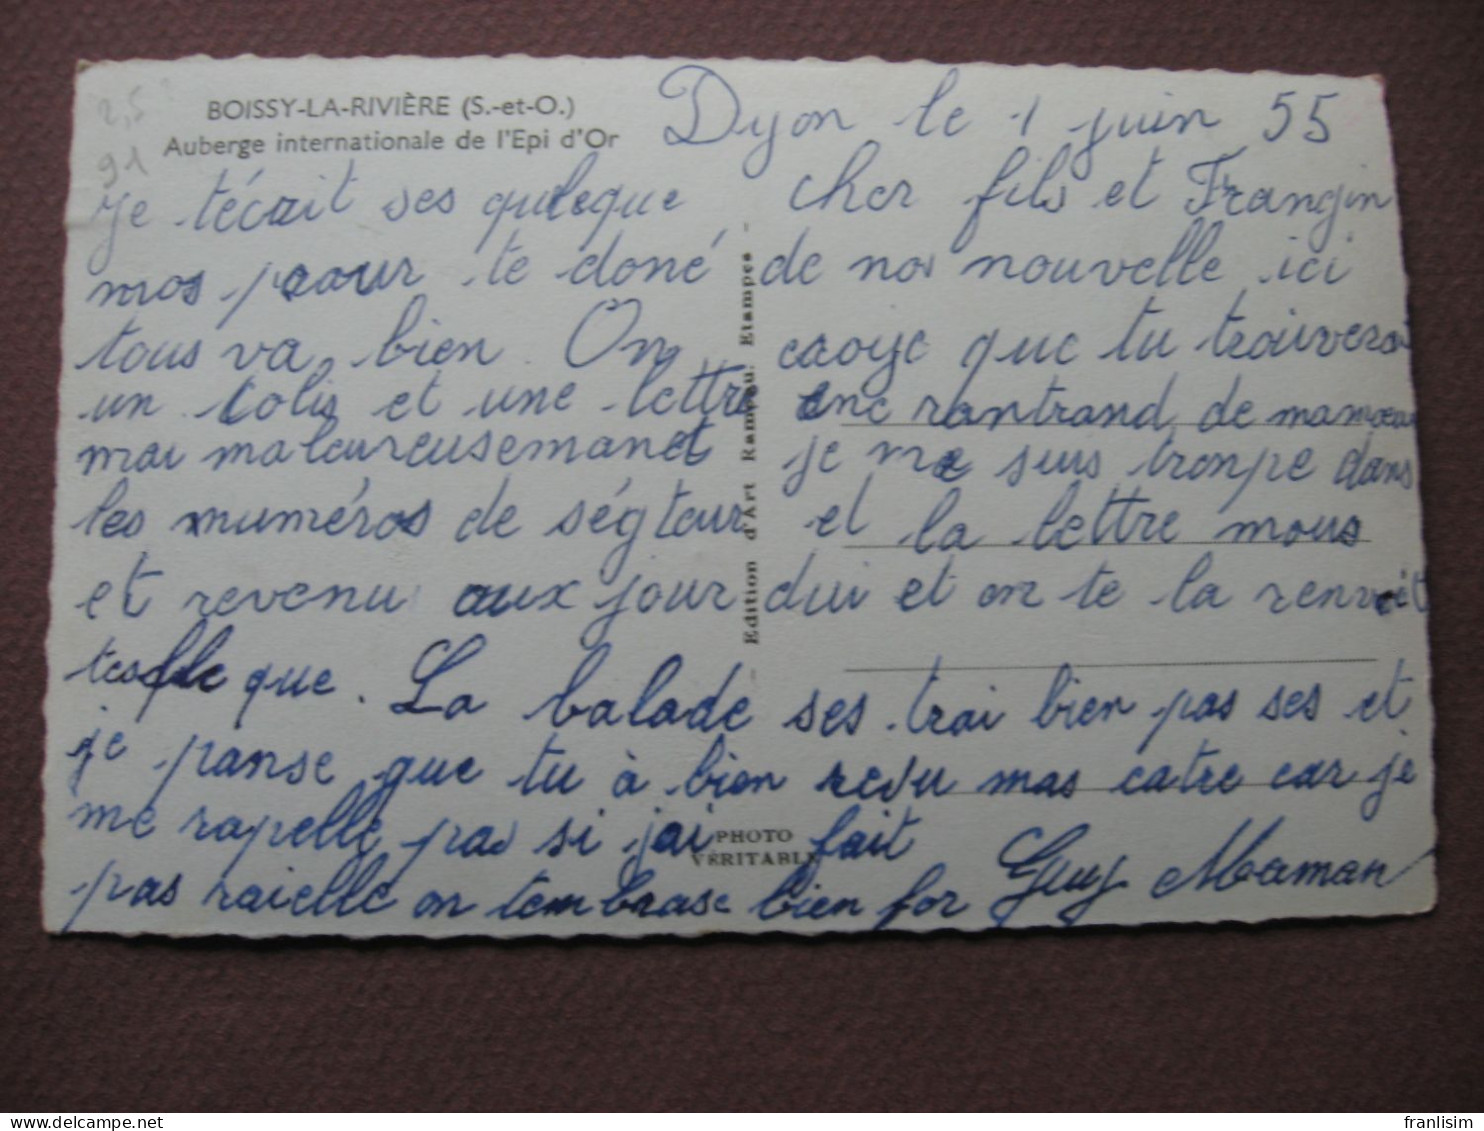 BOISSY-LA-RIVIÈRE (S.-et-O.)
Auberge internationale de l'Epi d'Or
2,5
91
Dyon le 1 juin 55
cher fils et Frangin
je técrit ses quleque
mos pour te doné de nos nouvelle ici
tous va bien. On croye que tu trouvera
un colis et une lettre enc rantrand de maneau
mai maleureusemanet je me suis trompe dans
les numéros de ségteur et la lettre nous
et revenu aux jour dui et on te la renvoit
tesfle que. La balade ses trai bien pas ses et
je panse que tu à bien reçu mas catre car je
me rapelle pas si jai fait
pas raielle on tembrase bien for Guy Maman
Edition d'Art Rameau, Etampes
PHOTO
VÉRITABLE
franlisim